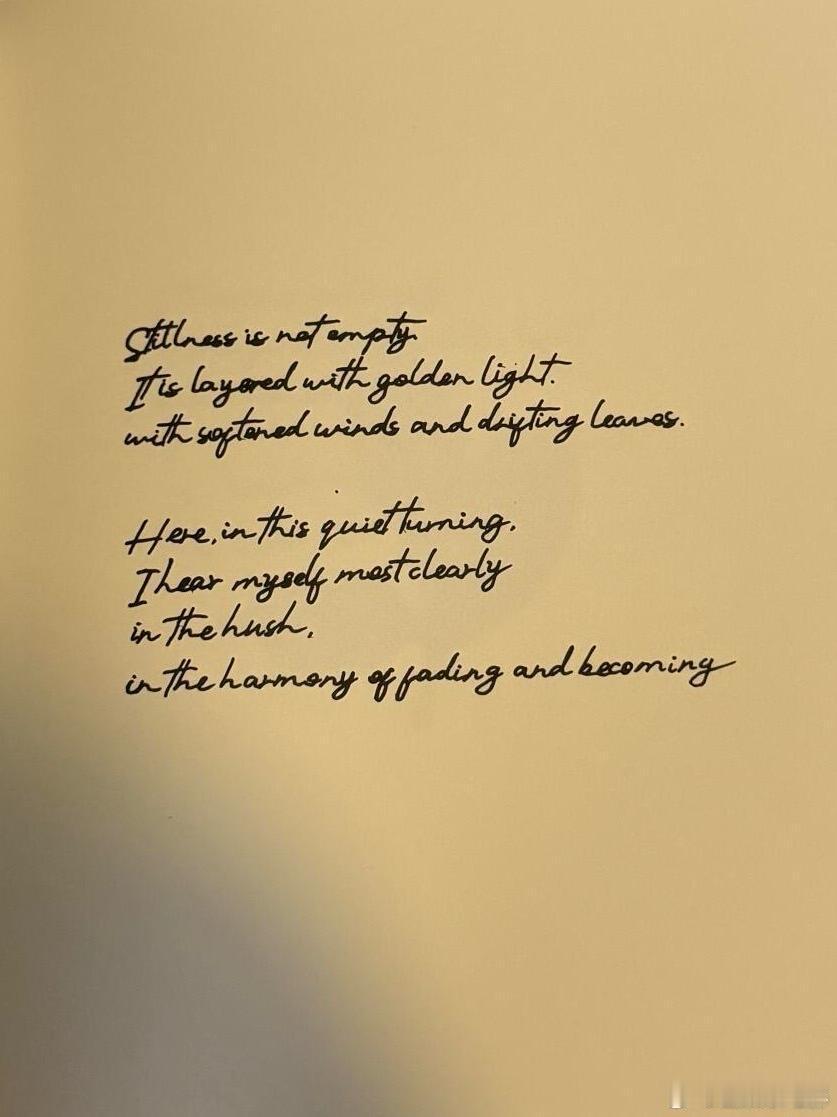 Stillness is not empty.
It is layered with golden light.
with softened winds and drifting leaves.
Here, in this quiet turning,
I hear myself most clearly
in the hush,
in the harmony of fading and becoming